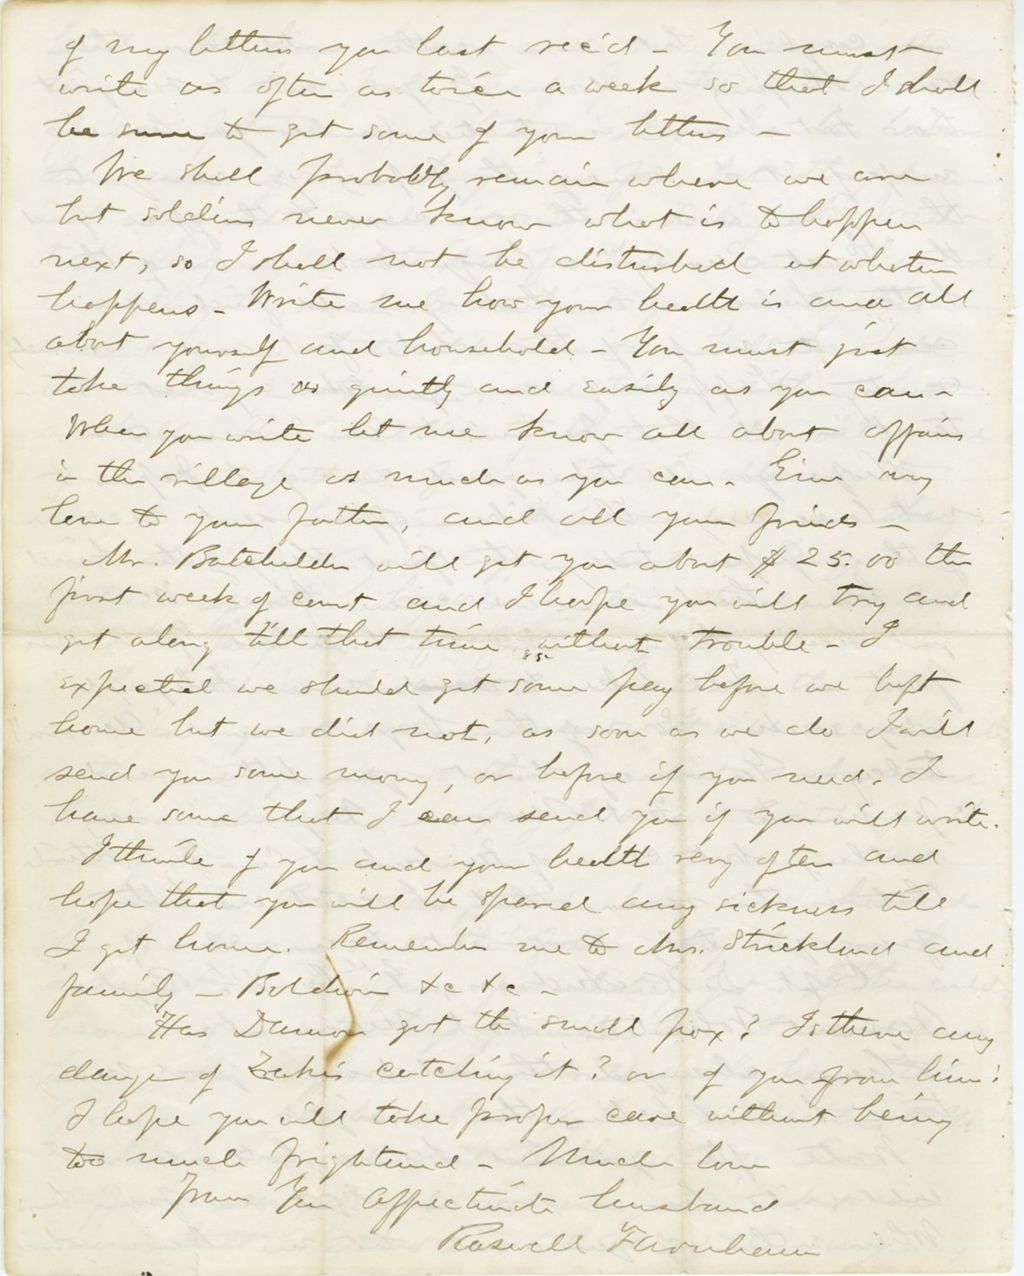 of my letters you last rec'd - You must
write as often as twice a week so that I shall
be sure to get some of your letters -
We shall probably remain where we are
but soldiers never know what is to happen
next, so I shall not be disturbed at whatever
happens - Write me how your health is and all
about yourself and household - You must just
take things as quietly and easily as you can -
When you write let me know all about affairs
in the village as much as you can. Give my
love to your father, and all your friends -
Mr. Batchelder will get you about $25.00 the
first week of court and I hope you will try and
get along till that time without trouble - I
expected we should get some pay before we left
home but we did not, as soon as we do I will
send you some money, or before if you need. I
have some that I can send you if you will write.
I think of you and your health very often and
hope that you will be spared any sickness till
I get home. Remember me to Mrs. Strickland and
family - Baldwin &c &c -
Has Damon got the small pox? Is there any
danger of Zeke's catching it? or of you from him?
I hope you will take proper care without being
too much frightened - Much love
From Your Affectionate husband
Roswell Farnham